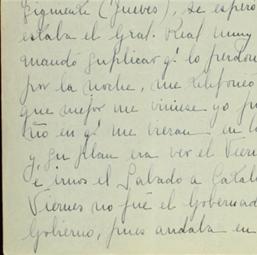 Siguiente (Jueves), se esperó
estaba el Gral. Real muy
mandó suplicar q! lo perdon
por la noche, me telefoneó
que mejor me viniese yo pa
no en q! me
y, su plan era ver el Vier
e irnos el Sabado a Catal
Viernes no fué el Gobernad
Gobierno, pues andaba en